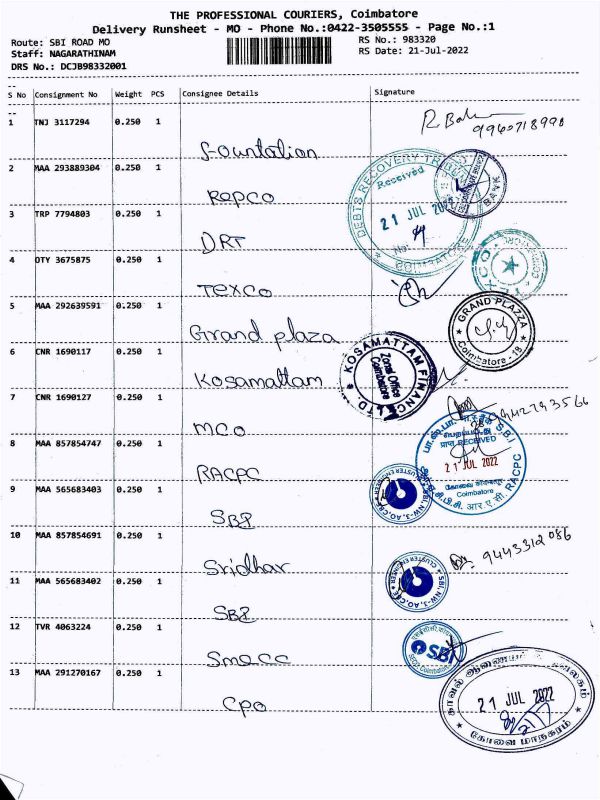 THE PROFESSIONAL COURIERS, Coimbatore
Delivery Runsheet - MO - Phone No.:0422-3505555 - Page No.:1
Route: SBI ROAD MO
RS No.: 983320
Staff: NAGARATHINAM
RS Date: 21-Jul-2022
DRS No.: DCJB98332001
S No Consignment No Weight PCS Consignee Details Signature
1 TNJ 3117294 0.250 1
R Bal
Fountation
2 MAA 293889304 0.250 1
Repco
DEBTS RECOVERY
Received
21 JUL 2022
No:
COIMBATORE
BANK
3 TRP 7794803 0.250 1
DRT
4 OTY 3675875 0.250 1
Texco
5 MAA 292639591 0.250 1
Grand plaza
GRAND PLAZZA
Coimbatore - 18
6 CNR 1690117 0.250 1
Kosamattam
KOSAMATTAM FINANCE LTD.
Zonal Office
Coimbatore
7 CNR 1690127 0.250 1
MCO
9942793566
8 MAA 857854747 0.250 1
RACPC
S.B.I
प्राप्त RECEIVED
21 JUL 2022
Coimbatore
आर.ए.सी. RACPC
9 MAA 565683403 0.250 1
SBI
CLUSTER ENGINEER
SBI, NW-3, AO, CBE
10 MAA 857854691 0.250 1
Sridhar
9443312086
11 MAA 565683402 0.250 1
SBI
CLUSTER ENGINEER
SBI, NW-3, AO, CBE
12 TVR 4063224 0.250 1
Smecc
SBI
Coimbatore
13 MAA 291270167 0.250 1
CPO
21 JUL 2022
கோவை மாநகரம்